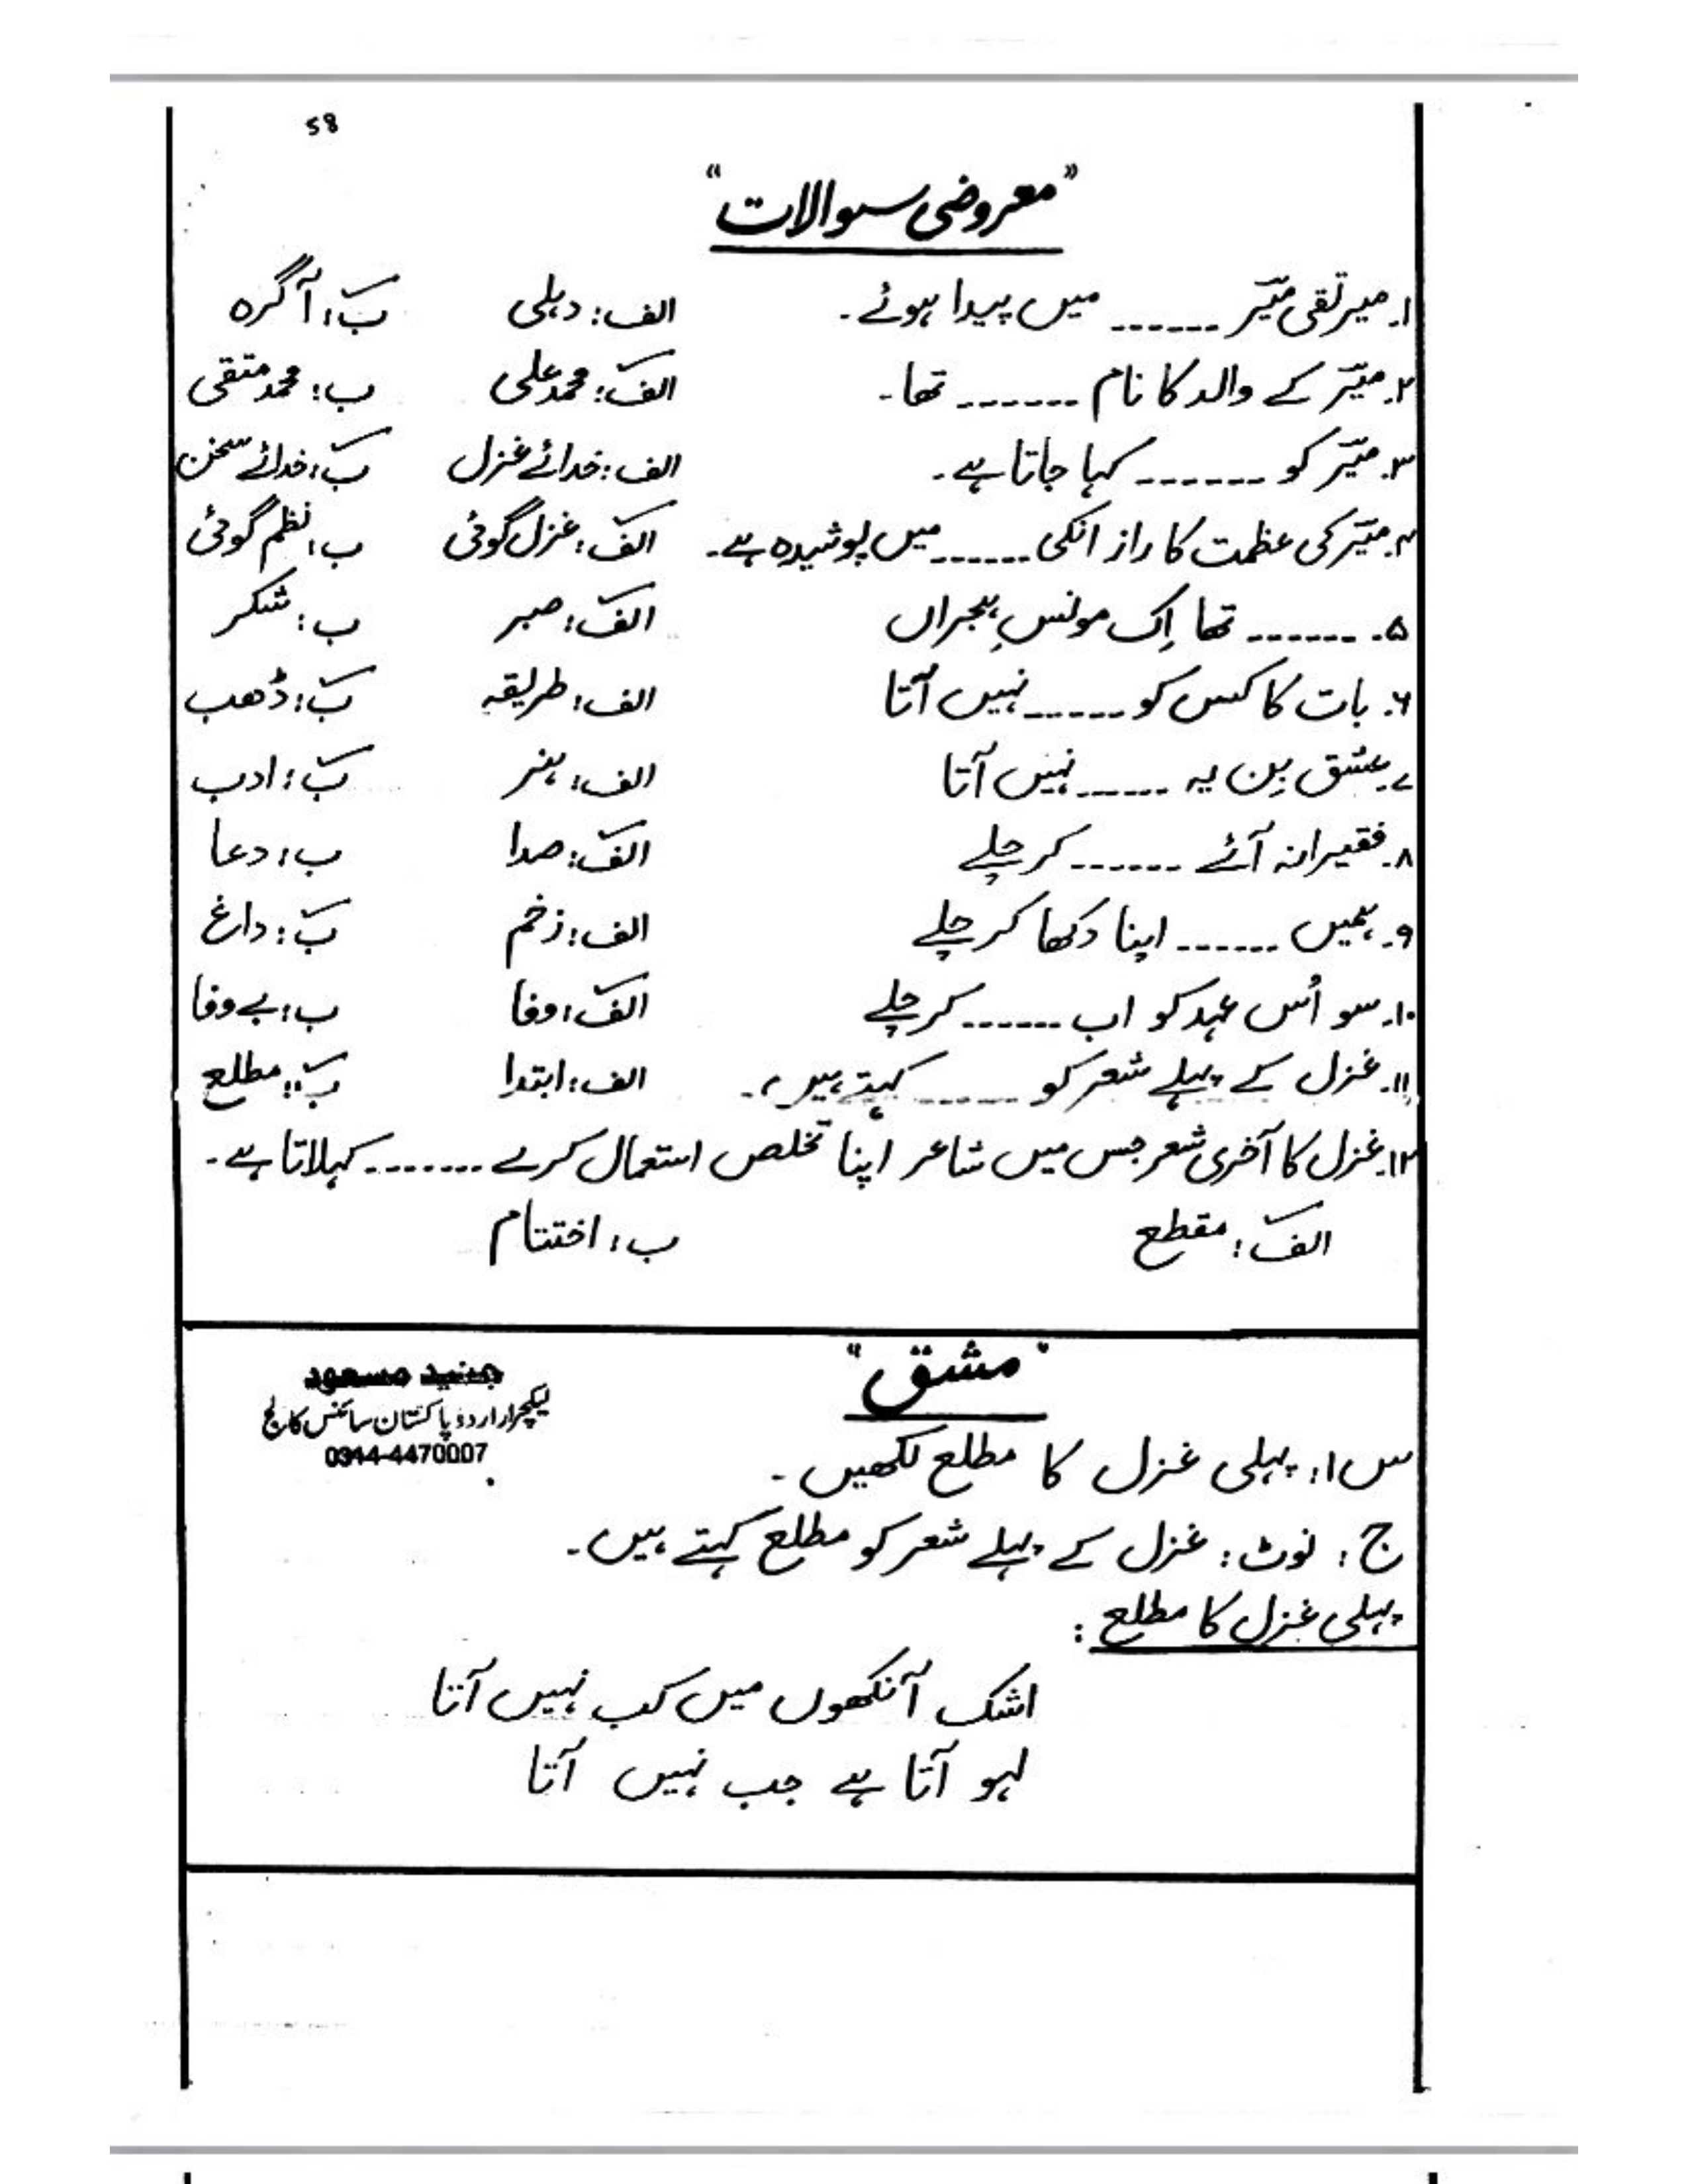 58
"معروضی سوالات"
۱۔ میر تقی میرؔ ------ میں پیدا ہوئے۔ الف: دہلی ب: آگرہ
۲۔ میرؔ کے والد کا نام ------- تھا۔ الف: محمد علی ب: محمد متقی
۳۔ میرؔ کو ------ کہا جاتا ہے۔ الف: خدائے غزل ب: خدائے سخن
۴۔ میرؔ کی عظمت کا راز انکی ------ میں پوشیدہ ہے۔ الف: غزل گوئی ب: نظم گوئی
۵۔ ------- تھا اِک مونسِ ہجراں الف: صبر ب: شکر
۶۔ بات کا کس کو ------ نہیں آتا الف: طریقہ ب: ڈھب
۷۔ عشق بِن یہ ------ نہیں آتا الف: ہنر ب: ادب
۸۔ فقیرانہ آئے ------ کر چلے الف: صدا ب: دعا
۹۔ ہمیں ------ اپنا دکھا کر چلے الف: زخم ب: داغ
۱۰۔ سو اُس عہد کو اب ------ کر چلے الف: وفا ب: بے وفا
۱۱۔ غزل کے پہلے شعر کو ------ کہتے ہیں۔ الف: ابتدا ب: مطلع
۱۲۔ غزل کا آخری شعر جس میں شاعر اپنا تخلص استعمال کرے ------- کہلاتا ہے۔
الف: مقطع ب: اختتام
"مشق"
جنید مسعود
لیکچرار اردو پاکستان سائنس کالج
0344-4470007
س۱: پہلی غزل کا مطلع لکھیں۔
ج: نوٹ: غزل کے پہلے شعر کو مطلع کہتے ہیں۔
پہلی غزل کا مطلع:
اشک آنکھوں میں کب نہیں آتا
لہو آتا ہے جب نہیں آتا